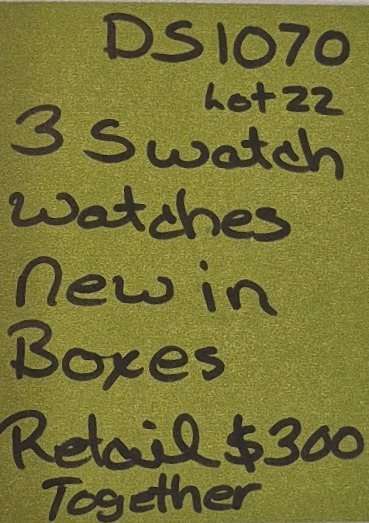 DS1070
Lot 22
3 Swatch
watches
New in
Boxes
Retail $300
Together